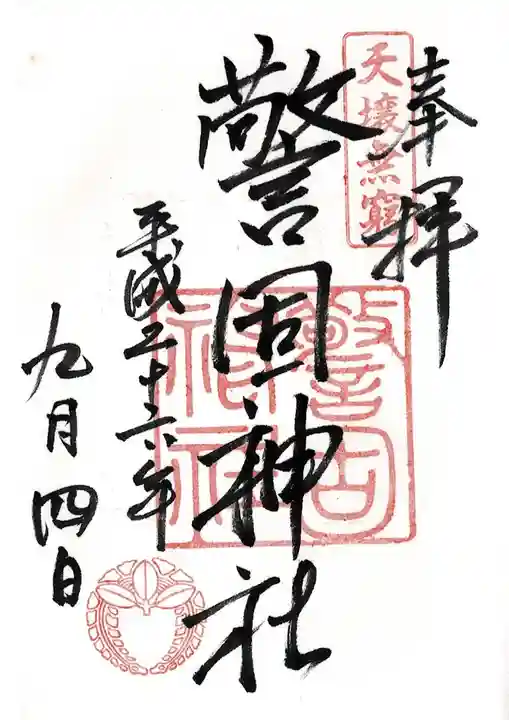 奉拝
天壌無窮
警固神社
警固神社
平成二十六年
九月四日